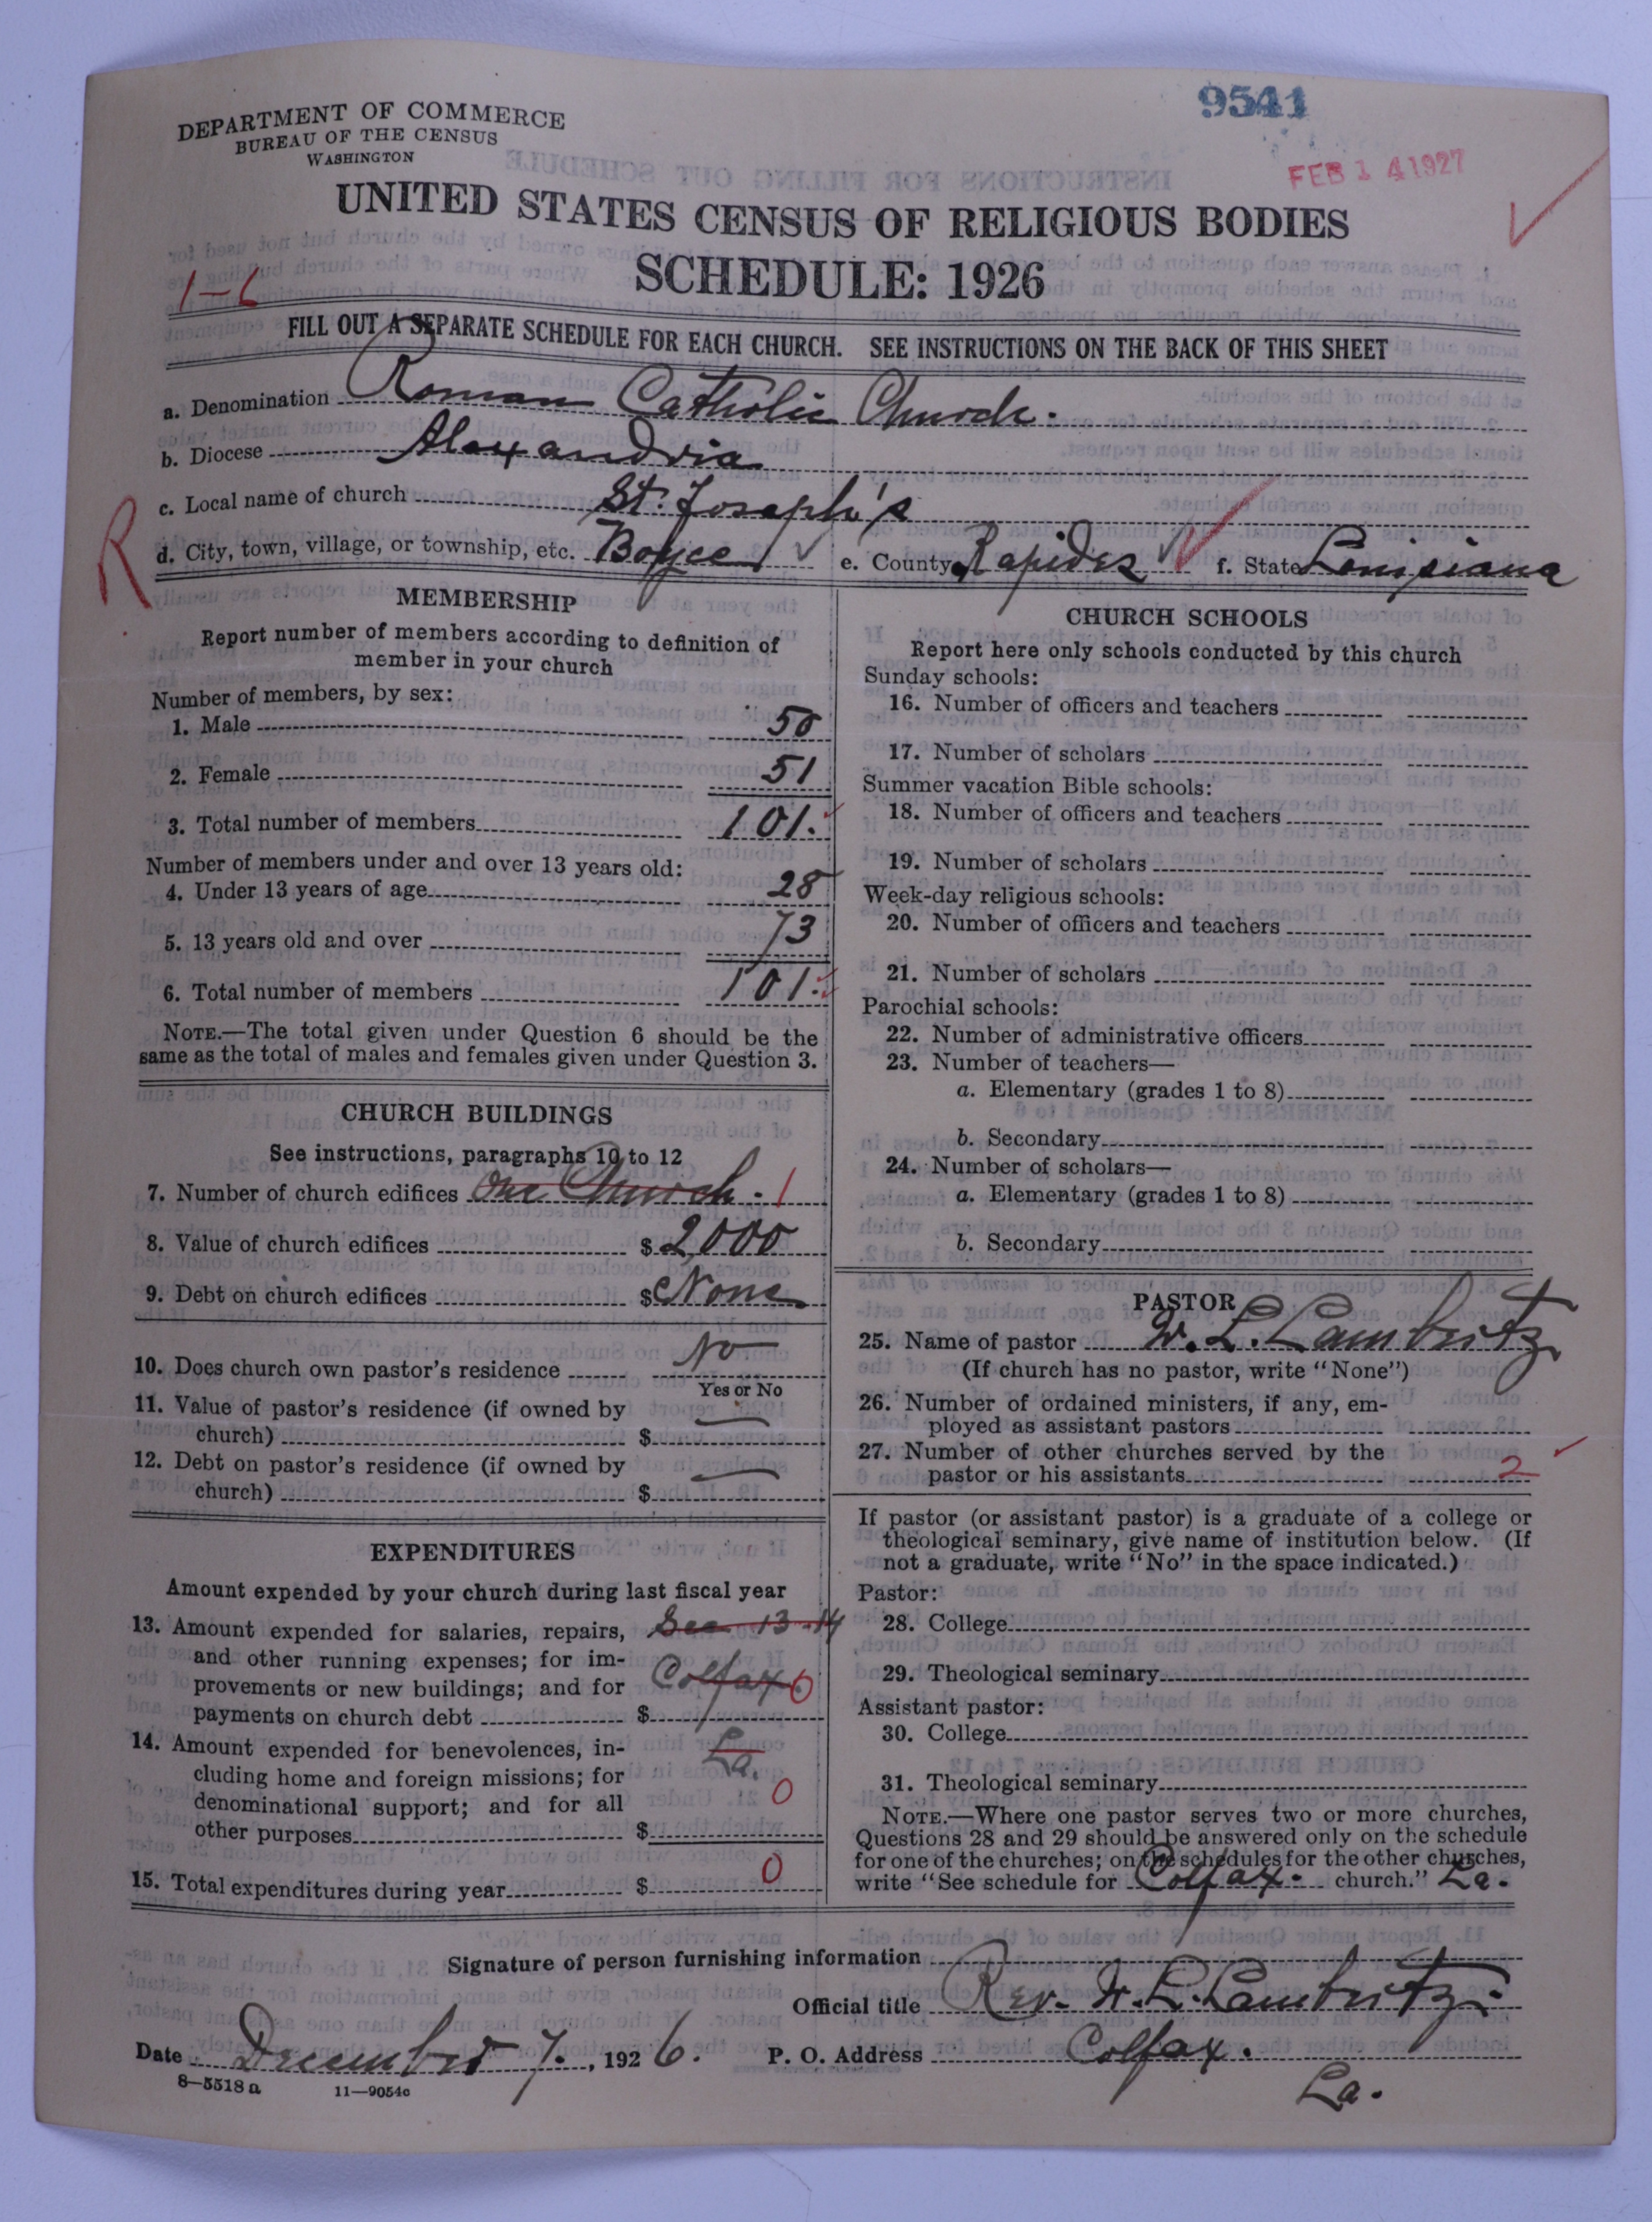 9541
DEPARTMENT OF COMMERCE
BUREAU OF THE CENSUS
WASHINGTON
FEB 14 1927
UNITED STATES CENSUS OF RELIGIOUS BODIES
SCHEDULE: 1926
1-6
FILL OUT A SEPARATE SCHEDULE FOR EACH CHURCH. SEE INSTRUCTIONS ON THE BACK OF THIS SHEET
a. Denomination Roman Catholic Church.
b. Diocese Alexandria
c. Local name of church St. Joseph's
R
d. City, town, village, or township, etc. Boyce e. County Rapides f. State Louisiana
MEMBERSHIP
Report number of members according to definition of
member in your church
Number of members, by sex:
1. Male 50
2. Female 51
3. Total number of members 101.
Number of members under and over 13 years old:
4. Under 13 years of age 28
5. 13 years old and over 73
6. Total number of members 101.
NOTE.—The total given under Question 6 should be the
same as the total of males and females given under Question 3.
CHURCH BUILDINGS
See instructions, paragraphs 10 to 12
7. Number of church edifices One Church. 1
8. Value of church edifices $ 2000
9. Debt on church edifices $ None
10. Does church own pastor's residence No
Yes or No
11. Value of pastor's residence (if owned by
church) $ —
12. Debt on pastor's residence (if owned by
church) $ —
EXPENDITURES
Amount expended by your church during last fiscal year
13. Amount expended for salaries, repairs, See 13-14
and other running expenses; for im-
provements or new buildings; and for Colfax 0
payments on church debt $
14. Amount expended for benevolences, in- La.
cluding home and foreign missions; for
denominational support; and for all 0
other purposes $
15. Total expenditures during year $ 0
CHURCH SCHOOLS
Report here only schools conducted by this church
Sunday schools:
16. Number of officers and teachers
17. Number of scholars
Summer vacation Bible schools:
18. Number of officers and teachers
19. Number of scholars
Week-day religious schools:
20. Number of officers and teachers
21. Number of scholars
Parochial schools:
22. Number of administrative officers
23. Number of teachers—
a. Elementary (grades 1 to 8)
b. Secondary
24. Number of scholars—
a. Elementary (grades 1 to 8)
b. Secondary
PASTOR
25. Name of pastor W. L. Lambritz
(If church has no pastor, write "None")
26. Number of ordained ministers, if any, em-
ployed as assistant pastors
27. Number of other churches served by the
pastor or his assistants 2
If pastor (or assistant pastor) is a graduate of a college or
theological seminary, give name of institution below. (If
not a graduate, write "No" in the space indicated.)
Pastor:
28. College
29. Theological seminary
Assistant pastor:
30. College
31. Theological seminary
NOTE.—Where one pastor serves two or more churches,
Questions 28 and 29 should be answered only on the schedule
for one of the churches; on the schedules for the other churches,
write "See schedule for Colfax. church." La.
Signature of person furnishing information
Official title Rev. W. L. Lambritz.
Date December 7., 1926. P. O. Address Colfax.
La.
8—5518 a 11—9054c